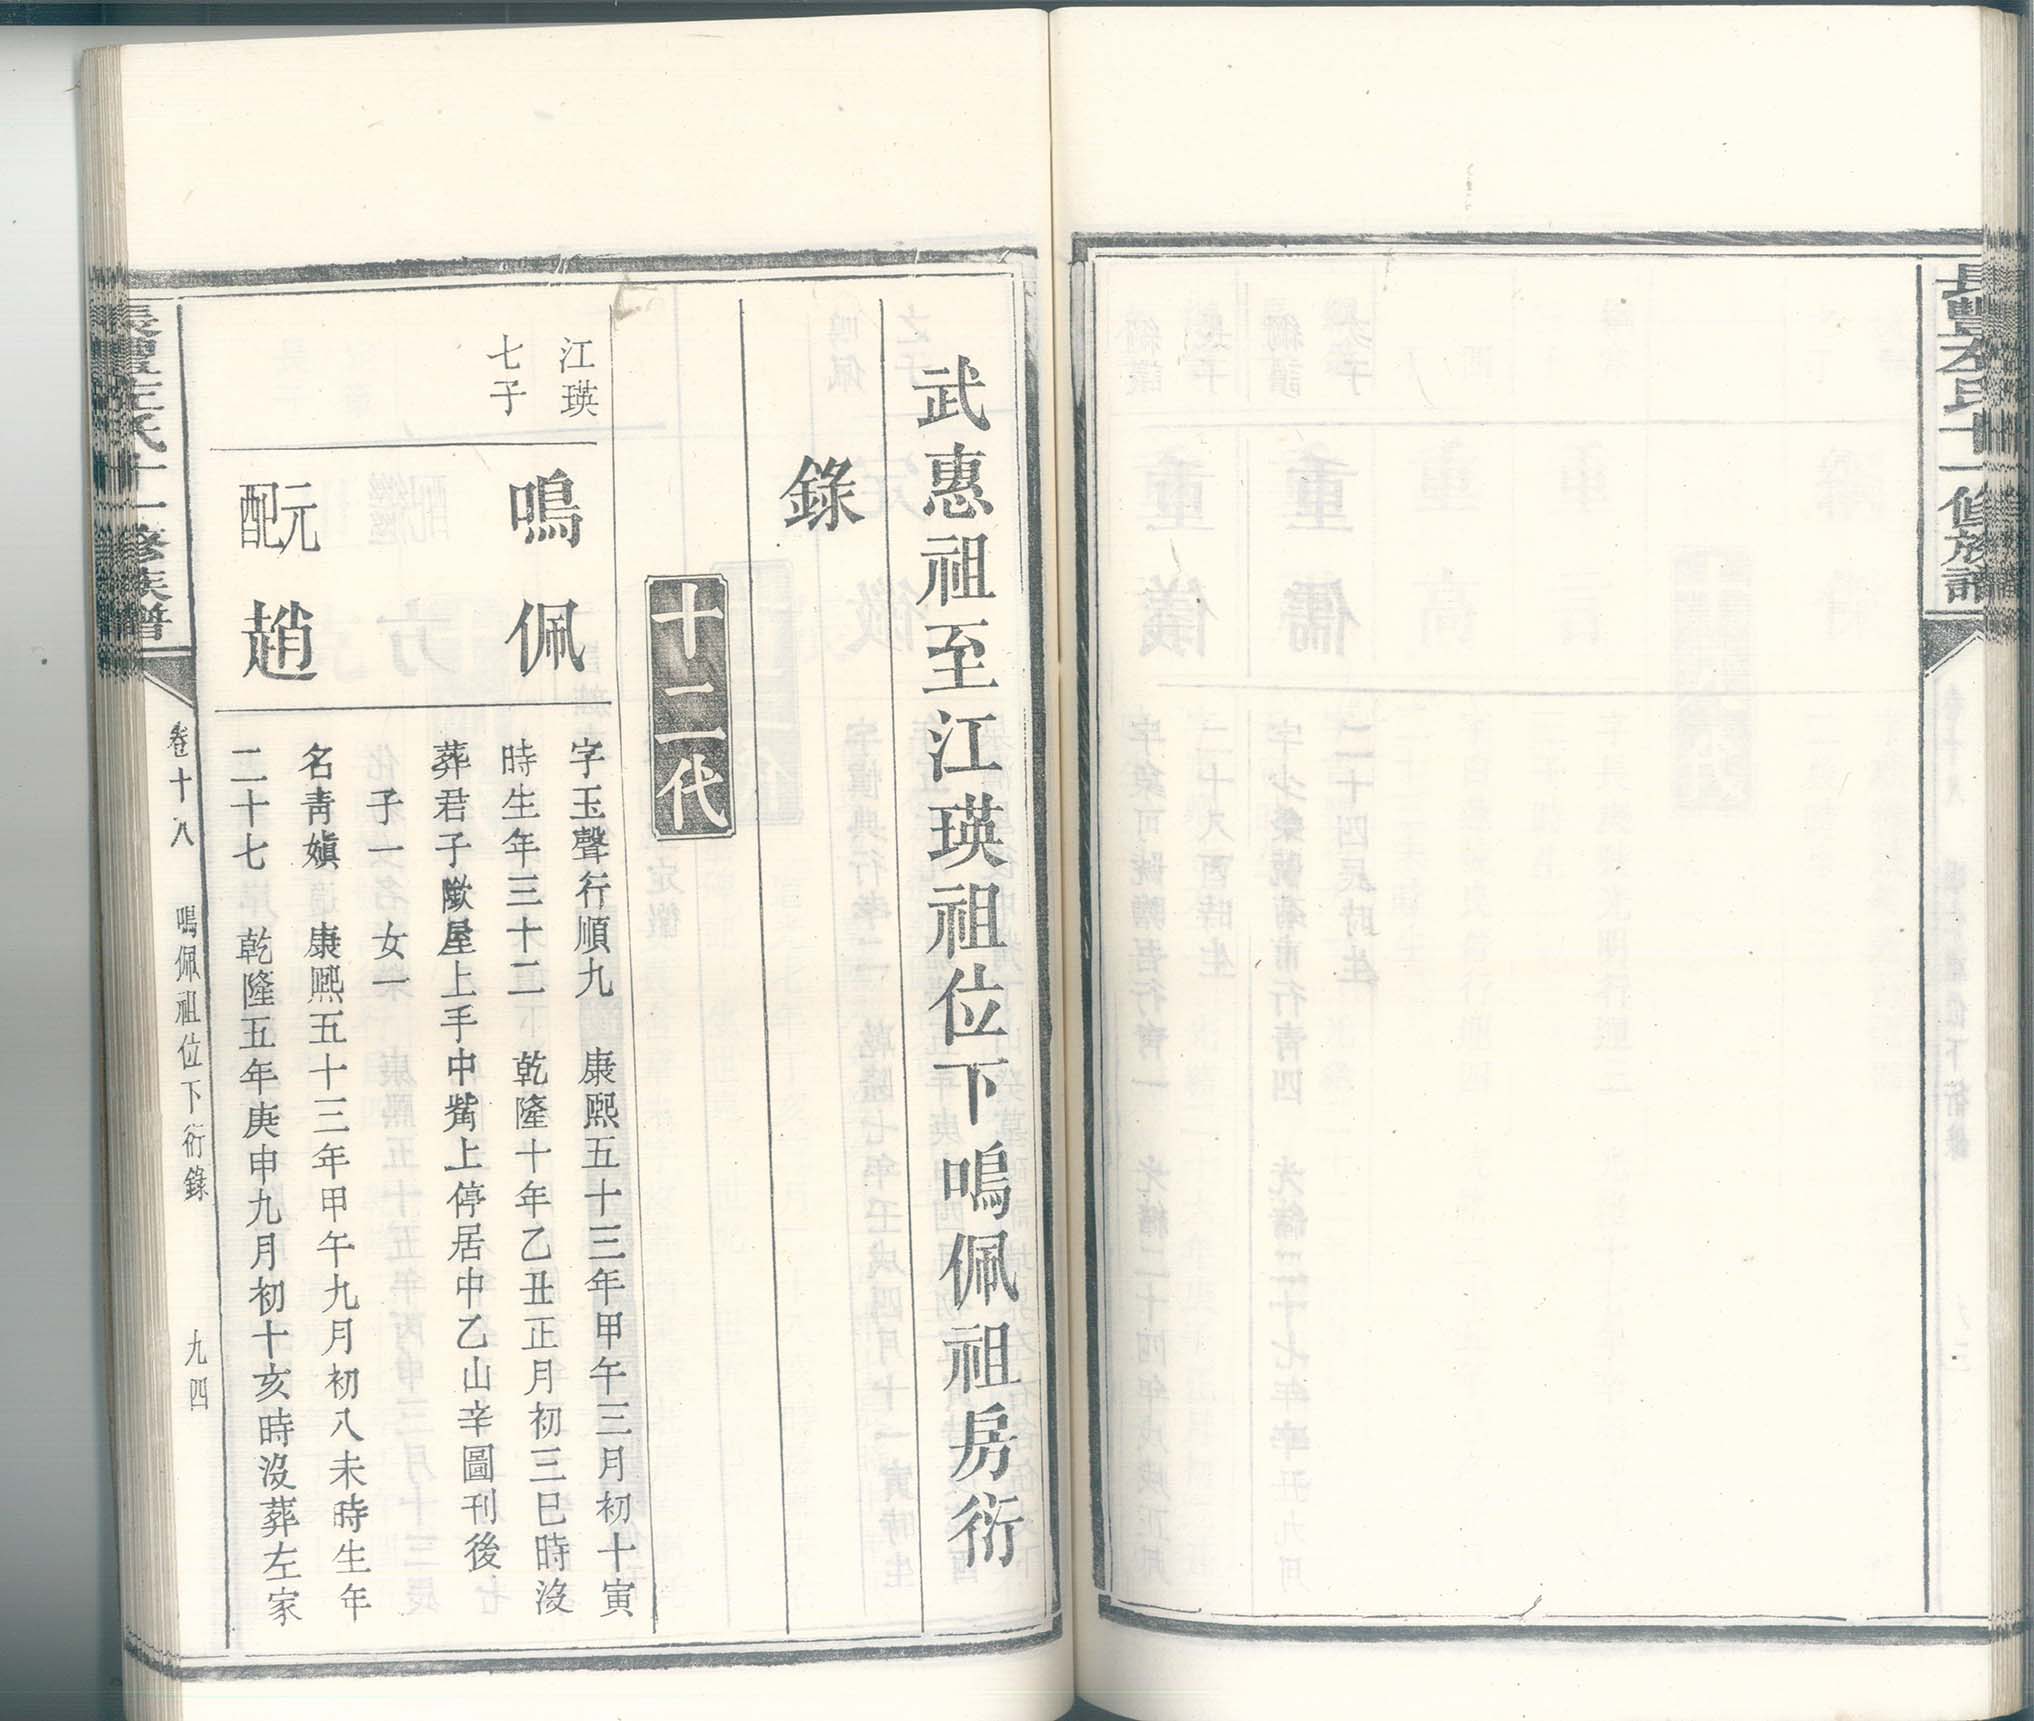 長豐左氏十一修族譜
武惠祖至江瑛祖位下鳴佩祖房衍
錄
十二代
江瑛
七子
鳴佩
字玉聲行順九 康熙五十三年甲午三月初十寅
時生年三十二 乾隆十年乙丑正月初三巳時沒
葬君子墩屋上手中嘴上停居中乙山辛圖刊後
子一 女一
元配 趙
名靑嫃 康熙五十三年甲午九月初八未時生年
二十七 乾隆五年庚申九月初十亥時沒葬左家
長豐左氏十一修族譜
卷十八 鳴佩祖位下衍錄 九四